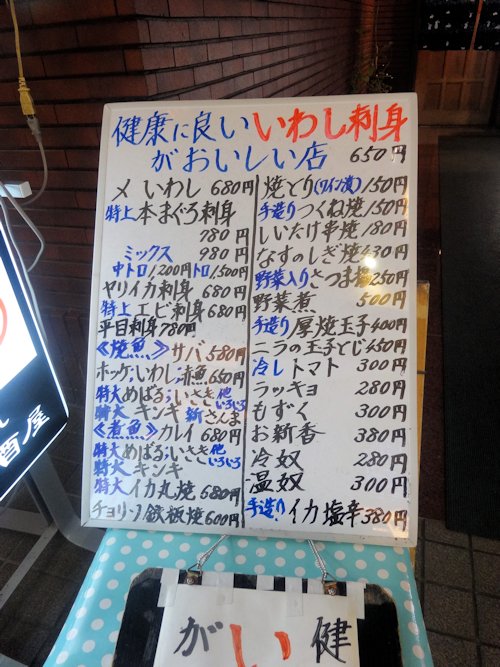 健康に良いいわし刺身
がおいしい店 650円
〆いわし 680円
特上 本まぐろ刺身
780円
ミックス 980円
中トロ1,200円 トロ1,500円
ヤリイカ刺身 680円
特上 エビ刺身 680円
平目刺身 780円
《焼魚》サバ 580円
ホッケ,いわし,赤魚 650円
特大 めばる,いさき 他いろいろ
特大 キンキ 新さんま
《煮魚》カレイ 680円
特大 めばる,いさき 他いろいろ
特大 キンキ
特大 イカ丸焼 680円
チョリソ鉄板焼 600円
焼とり(ワイン漬) 150円
手造り つくね焼 150円
しいたけ串焼 180円
なすのしぎ焼 430円
野菜入り さつま揚 250円
野菜煮 500円
手造り 厚焼玉子 400円
ニラの玉子とじ 450円
冷し トマト 300円
ラッキョ 280円
もずく 300円
お新香 380円
冷奴 280円
温奴 300円
手造り イカ塩辛 380円
健
い
が
酒ノ屋